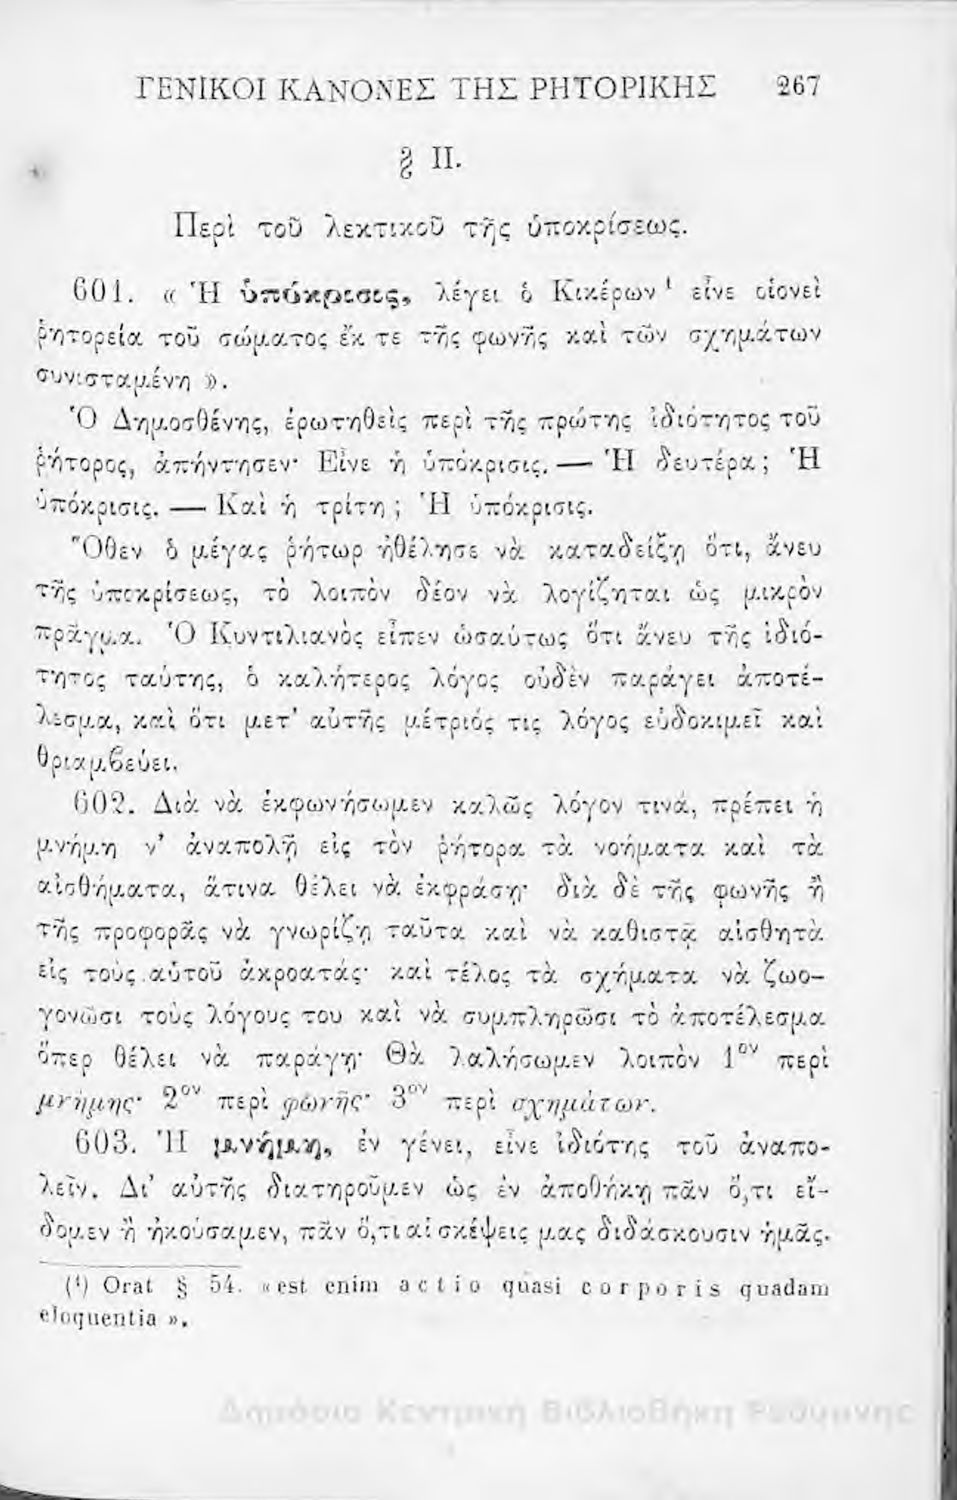 ΓΕΝΙΚΟΙ ΚΑΝΟΝΕΣ ΤΗΣ ΡΗΤΟΡΙΚΗΣ 267
§ II.
Περὶ τοῦ λεκτικοῦ τῆς ὑποκρίσεως.
601. « Ἡ ὑπόκρισις, λέγει ὁ Κικέρων ¹ εἶνε οἱονεὶ
ῥητορεία τοῦ σώματος ἔκ τε τῆς φωνῆς καὶ τῶν σχημάτων
συνισταμένη ».
Ὁ Δημοσθένης, ἐρωτηθεὶς περὶ τῆς πρώτης ἰδιότητος τοῦ
ῥήτορος, ἀπήντησεν· Εἶνε ἡ ὑπόκρισις. — Ἡ δευτέρα; Ἡ
ὑπόκρισις. — Καὶ ἡ τρίτη ; Ἡ ὑπόκρισις.
Ὅθεν ὁ μέγας ῥήτωρ ἠθέλησε νὰ καταδείξῃ ὅτι, ἄνευ
τῆς ὑποκρίσεως, τὸ λοιπὸν δέον νὰ λογίζηται ὡς μικρὸν
πρᾶγμα. Ὁ Κυντιλιανὸς εἶπεν ὡσαύτως ὅτι ἄνευ τῆς ἰδιό-
τητος ταύτης, ὁ καλήτερος λόγος οὐδὲν παράγει ἀποτέ-
λεσμα, καὶ ὅτι μετ' αὐτῆς μέτριός τις λόγος εὐδοκιμεῖ καὶ
θριαμβεύει.
602. Διὰ νὰ ἐκφωνήσωμεν καλῶς λόγον τινά, πρέπει ἡ
μνήμη ν' ἀναπολῇ εἰς τὸν ῥήτορα τὰ νοήματα καὶ τὰ
αἰσθήματα, ἅτινα θέλει νὰ ἐκφράσῃ· διὰ δὲ τῆς φωνῆς ἢ
τῆς προφορᾶς νὰ γνωρίζῃ ταῦτα καὶ νὰ καθιστᾷ αἰσθητὰ
εἰς τοὺς αὑτοῦ ἀκροατάς· καὶ τέλος τὰ σχήματα νὰ ζωο-
γονῶσι τοὺς λόγους του καὶ νὰ συμπληρῶσι τὸ ἀποτέλεσμα
ὅπερ θέλει νὰ παράγῃ· Θὰ λαλήσωμεν λοιπὸν 1ᵒᵛ περὶ
μνήμης· 2ᵒᵛ περὶ φωνῆς· 3ᵒᵛ περὶ σχημάτων.
603. Ἡ μνήμη, ἐν γένει, εἶνε ἰδιότης τοῦ ἀναπο-
λεῖν. Δι' αὐτῆς διατηροῦμεν ὡς ἐν ἀποθήκῃ πᾶν ὅ,τι εἴ-
δομεν ἢ ἠκούσαμεν, πᾶν ὅ,τι αἱ σκέψεις μας διδάσκουσιν ἡμᾶς.
(¹) Orat § 54. «est enim actio quasi corporis quadam
eloquentia ».
Δημόσια Κεντρική Βιβλιοθήκη Ρεθύμνης